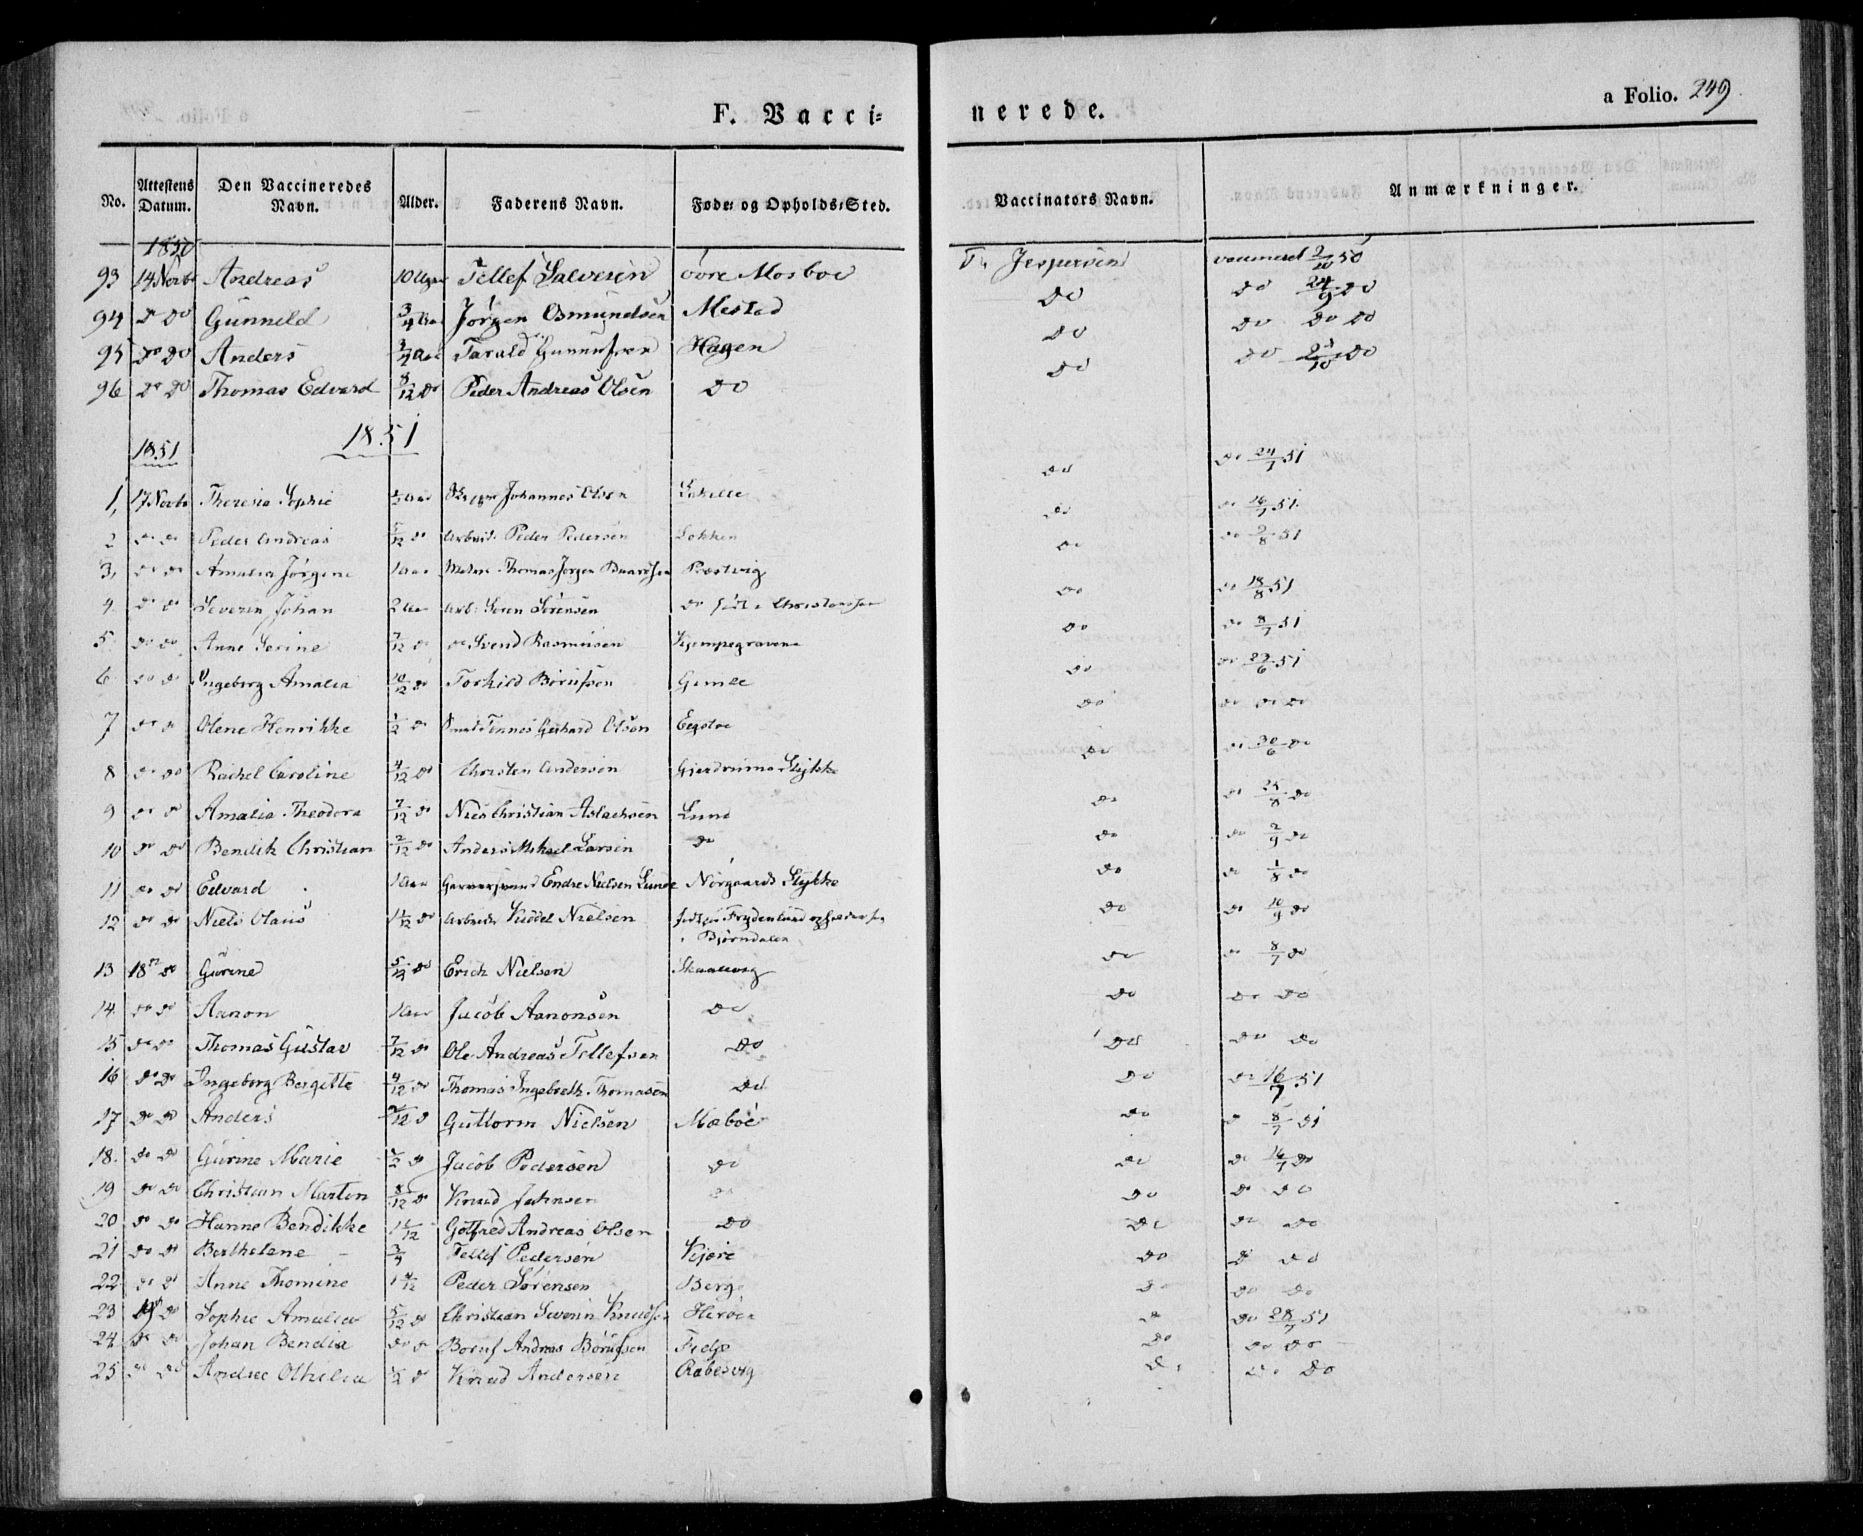 F. Vacci= nerede. a Folio. 249
No. Attestens Datum. Den Vaccineredes Navn. Alder. Faderens Navn. Føde= og Opholds=Sted. Vaccinators Navn. Anmærkninger.
1850
93 14 Novbr Andreas Tellef Salvesen övre Mosboe Jespersen vaccineret 2/10 50
94 do do Gunneld 3/4 Aar Jörgen Osmundsen Mestad do do 24/9 do
95 do do Anders Tarald Gunnufsen Hagen do do do do
96 do do Thomas Edvard 8/12 do Peder Andreas Olsen do do do 23/10 do
1851
1851
1, 17 Novbr Theresia Sophie Johannes Olsen do do 24/7 51
2 do do Peder Andreas 5/12 do Arbeid. Peder Pedersen Lokken do do 16/7 51
3, do do Amalia Jörgine 1 Aar Thomas Jörgen Prestvig do do 9/8 51
4 do do Severin Johan 2 Aar Arb: Sören Sörensen do do do 18/8 51
5 do do Anne Serine 7/12 do do Svend Rasmussen Kjempegravene do do 8/7 51
6 do do Ingeborg Amalia 10/12 do Torkild Börufsen Gimle do do 23/6 51
7 do do Olene Henrikke 1/2 do Tönnes Gerhard Olsen Egstoe do do do do
8 do do Rachel Caroline 4/12 do Christen Andersen Gjerdrums Stykke do do 30/6 do
9 do do Amalia Theodora 7/12 do Niels Christian Aslachsen Lund do do do
10 do do Bendik Christian 2/12 do Anders Mikael Larsen do do do 2/9 do
11 do do Edvard 1 Aar Garversvend Endre Nielsen Lunde Nörgaards Stykke do do 1/8 do
12 do do Niels Olaus do Arbeids Nielsen Frydenlund
i Bjørndalen do do 10/9 do
13 18de do Gurine 5/12 do Erich Nielsen Skaalevig do do 8/7 do
14 do do Aanon 1 Aar Jacob Aanonsen do do do do
15 do do Thomas Gustav 7/12 do Ole Andreas Tellefsen do do do do
16 do do Ingeborg Bergitte 4/12 do Thomas Ingebreth. Thomasen do do do 16/7 51
17 do do Anders Guttorm Nielsen Mæboe do do 8/7 51
18. do do Gurine Marie 1/2 do Jacob Pedersen do do do 16/7 do
19 do do Christian Martin 8/12 do Knud Jahnsen do do do do
20 do do Hanne Bendikke Gotfred Andreas Olsen do do do do
21 do do Berthelene 3/4 Tellef Pedersen Kjære do do do
22 do do Anne Thomine Peder Sörensen Berg do do do
23 19de do Sophie Amalia 5/12 do Christian Severin Knudsen Heröen do do 28/7 51
24 do do Johan Bendix do do Boruf Andreas Börufsen Fidje do do do
25 do do Andree Othilia 1/2 do Knud Andersen Rabesvig do do do